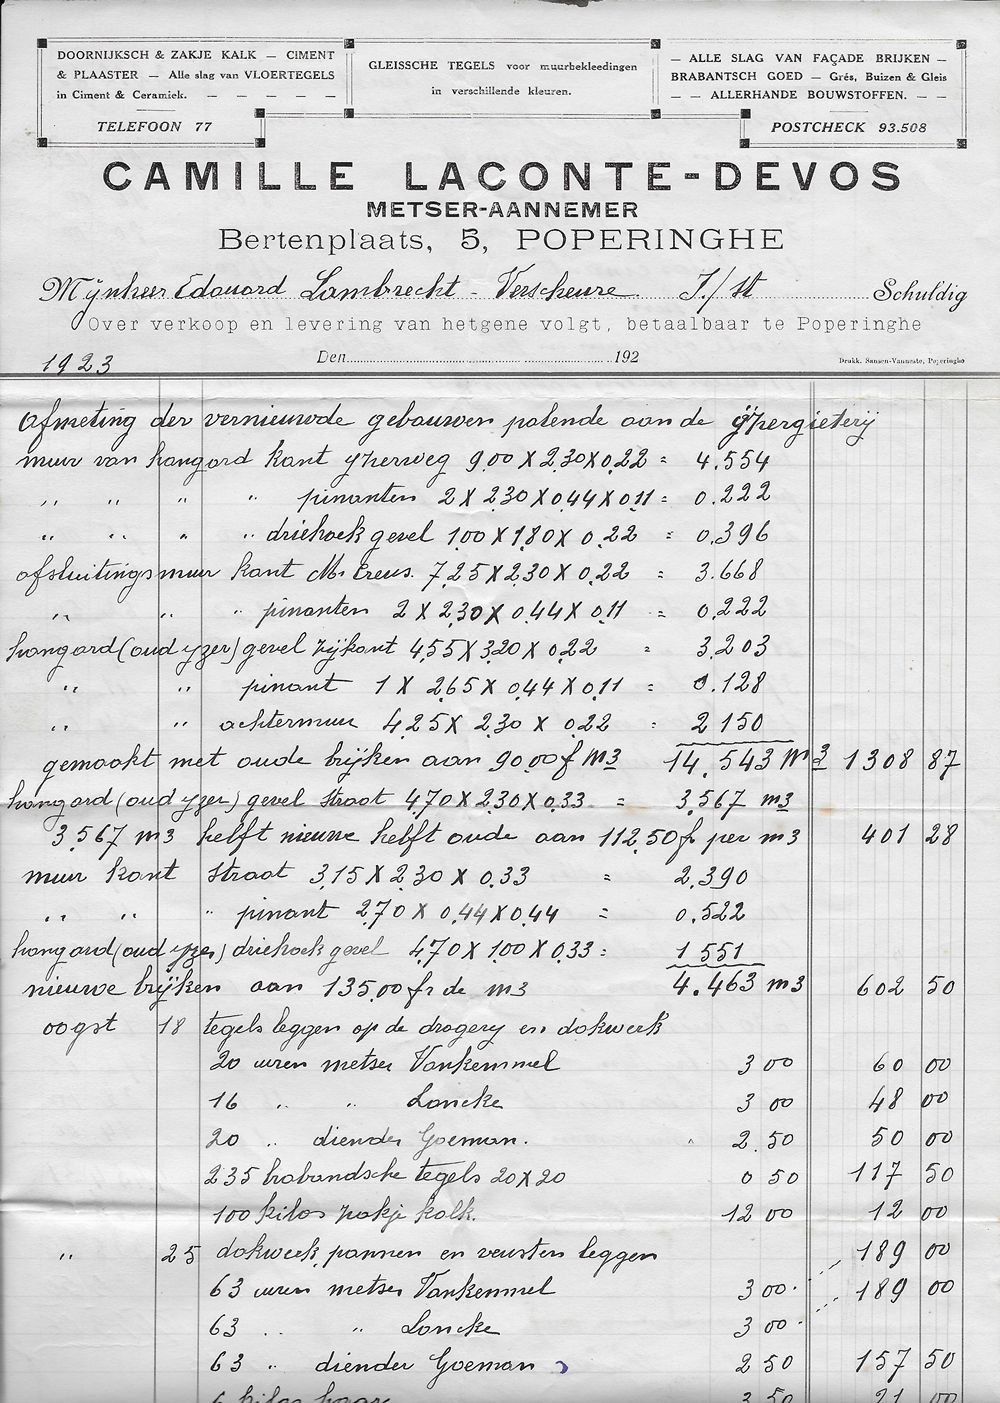 DOORNIJKSCH & ZAKJE KALK — CIMENT
& PLAASTER — Alle slag van VLOERTEGELS
in Ciment & Ceramiek. — — — — —
TELEFOON 77
GLEISSCHE TEGELS voor muurbekleedingen
in verschillende kleuren.
— ALLE SLAG VAN FAÇADE BRIJKEN —
BRABANTSCH GOED — Grés, Buizen & Gleis
— — ALLERHANDE BOUWSTOFFEN. — —
POSTCHECK 93.508
CAMILLE LACONTE-DEVOS
METSER-AANNEMER
Bertenplaats, 5, POPERINGHE
Mijnheer Edouard Lambrecht - Verscheure J/st Schuldig
Over verkoop en levering van hetgene volgt, betaalbaar te Poperinghe
1923 Den 192
Drukk. Sansen-Vanneste, Poperinghe
Afmeting der vernieuwde gebouwen palende aan de ijzergieterij
muur van hangard kant yzerweg 9.00 X 2.30 X 0.22 = 4.554
,, ,, ,, ,, pinanten 2 X 2.30 X 0.44 X 0.11 = 0.222
,, ,, ,, ,, driehoek gevel 1.00 X 1.80 X 0.22 = 0.396
afsluitingsmuur kant M. Ereus. 7.25 X 2.30 X 0.22 = 3.668
,, ,, ,, pinanten 2 X 2.30 X 0.44 X 0.11 = 0.222
hangard (oud yzer) gevel zijkant 4.55 X 3.20 X 0.22 = 3.203
,, ,, pinant 1 X 2.65 X 0.44 X 0.11 = 0.128
,, ,, achtermuur 4.25 X 2.30 X 0.22 = 2 150
gemaakt met oude brijken aan 90.00 f M3 14.543 M3 1308 87
hangard (oud yzer) gevel straat 4.70 X 2.30 X 0.33 = 3.567 m3
3.567 m3 helft nieuwe helft oude aan 112.50 fr per m3 401 28
muur kant straat 3.15 X 2.30 X 0.33 = 2.390
,, ,, ,, pinant 2.70 X 0.44 X 0.44 = 0.522
hangard (oud yzer) driehoek gevel 4.70 X 1.00 X 0.33 = 1 551
nieuwe brijken aan 135.00 fr de m3 4.463 m3 602 50
oogst 18 tegels leggen op de drogery en dakwerk
20 uren metser Vankemmel 3 00 60 00
16 ,, ,, Loncke 3 00 48 00
20 ,, diender Goeman. 2.50 50 00
235 brabandsche tegels 20 X 20 0 50 117 50
100 kilos zakje kalk. 12 00 12 00
,, 25 dakwerk, pannen en veursten leggen 189 00
63 uren metser Vankemmel 3 00 189 00
63 ,, ,, Loncke 3 00
63 ,, diender Goeman 2 50 157 50
6 kilos haar 3 50 21 00